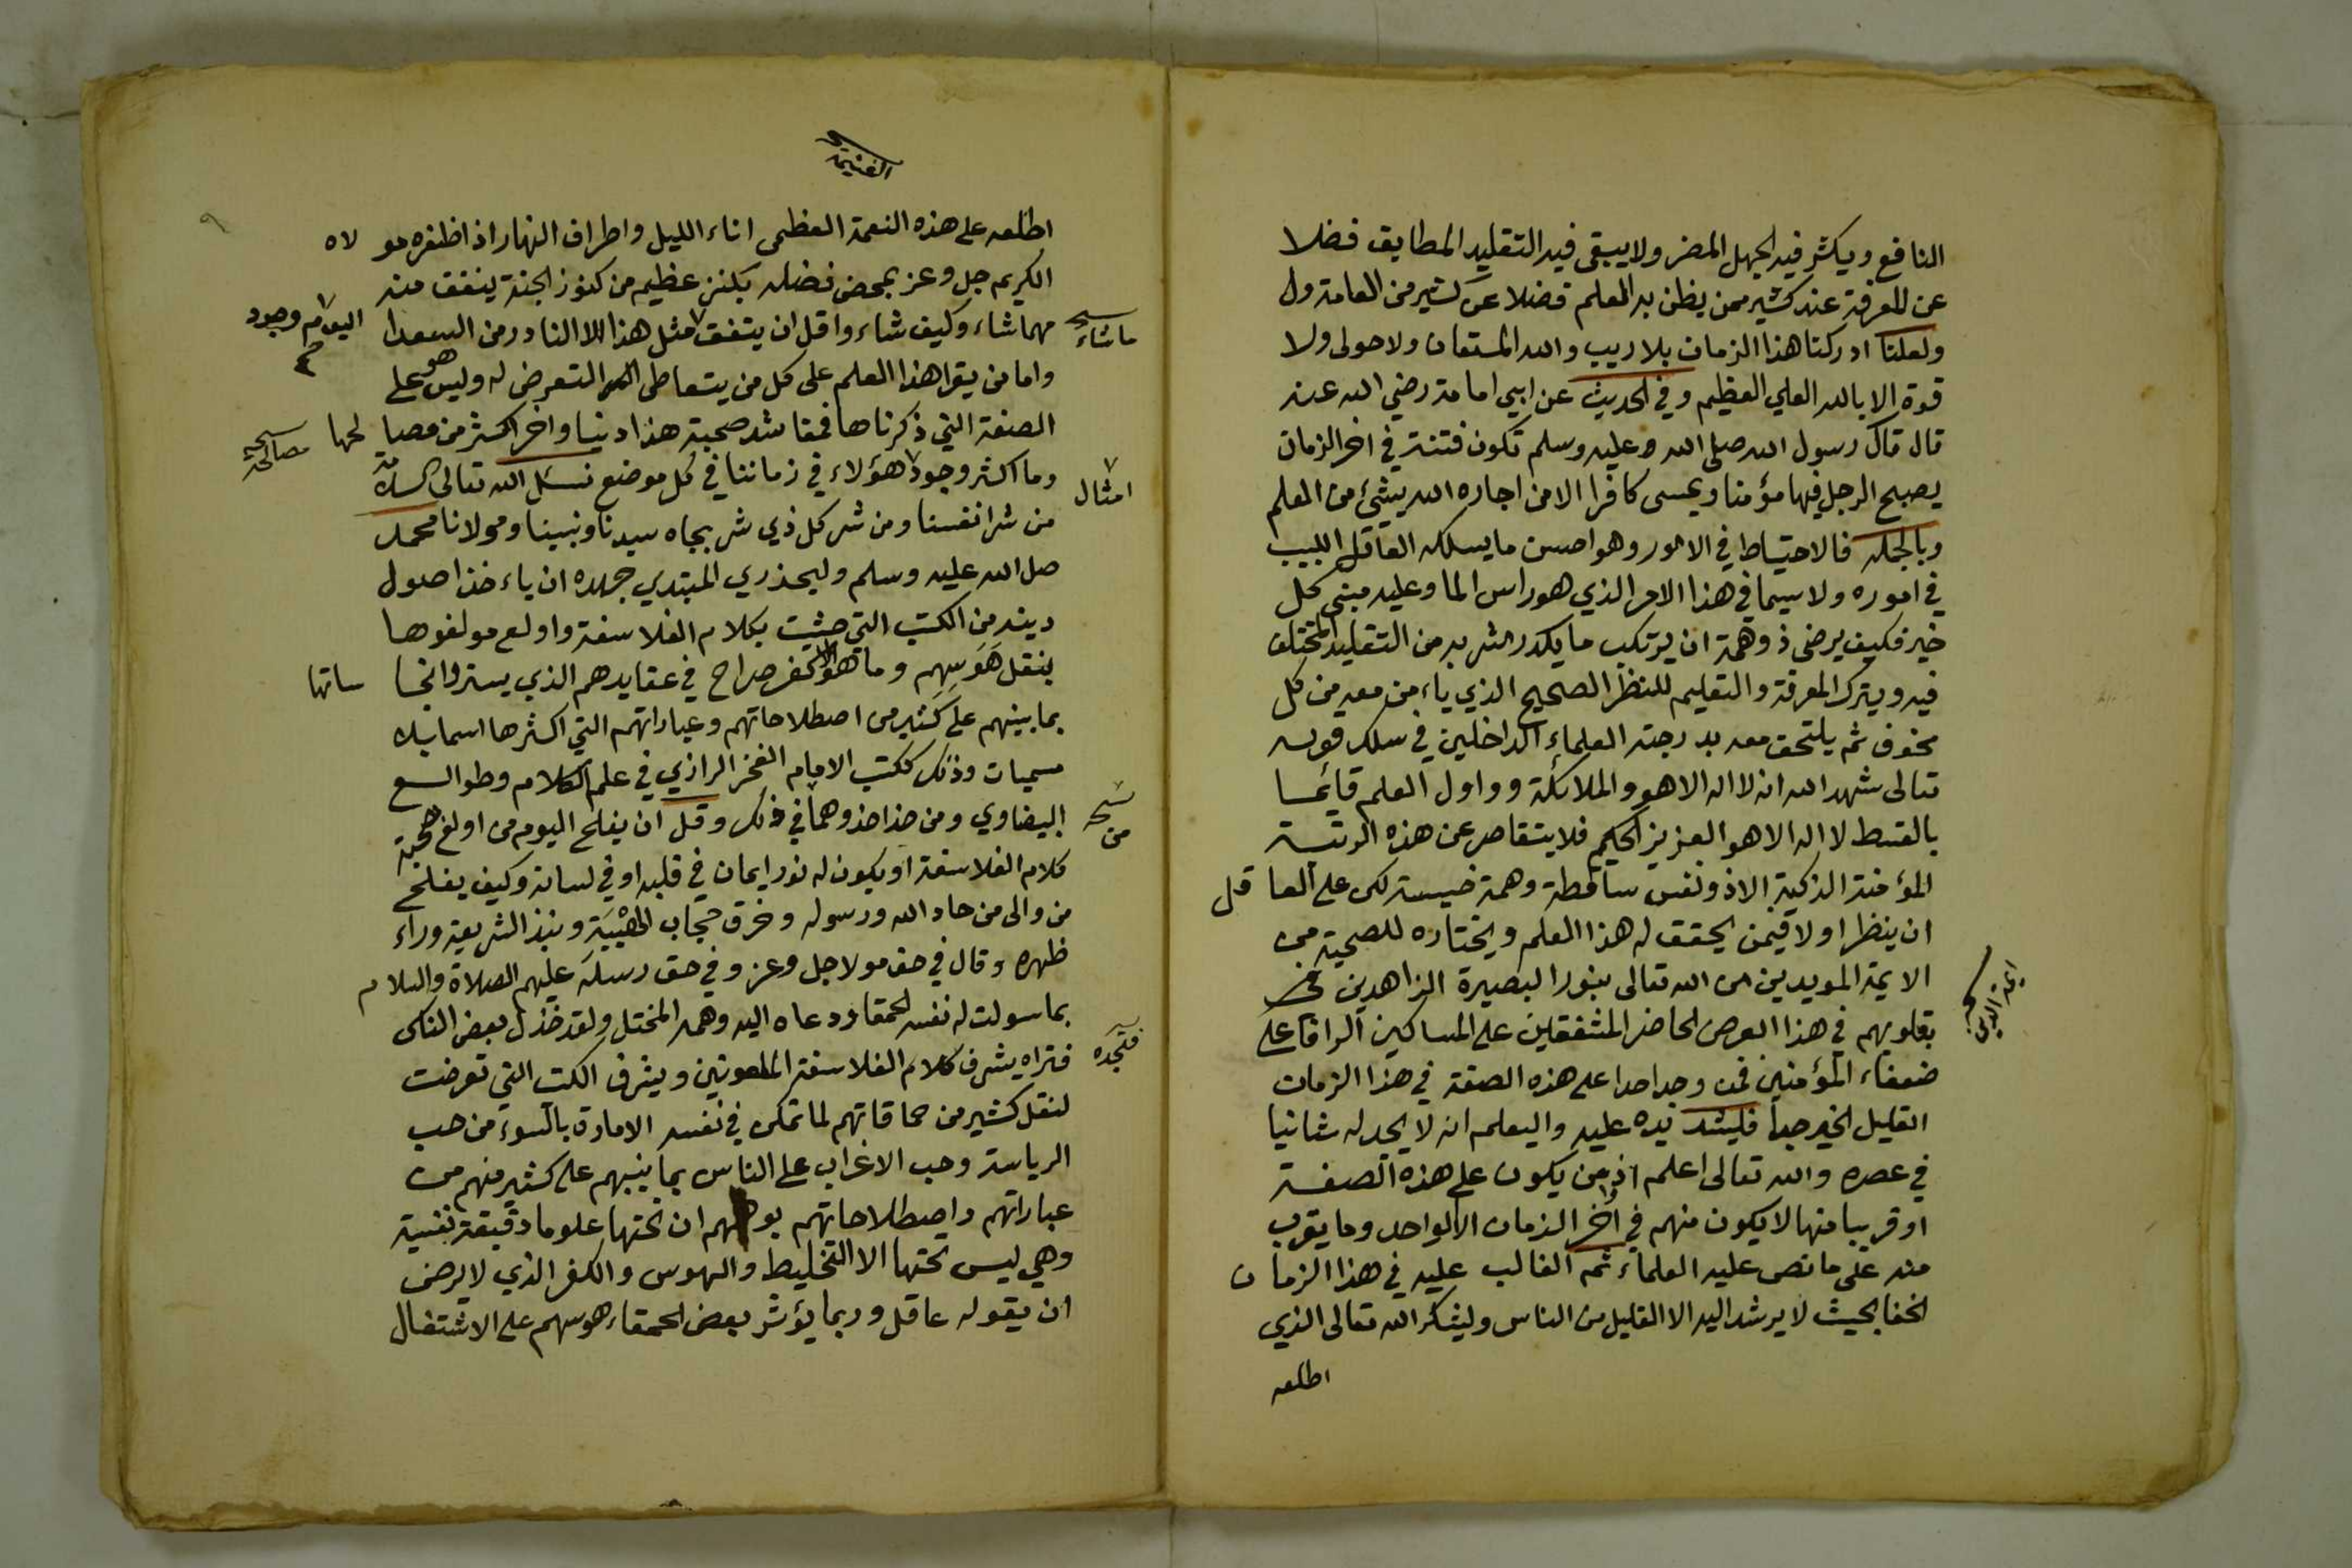 النافع ويكثر فيه الجهل المضر ولا يبقى فيه التقليد المطابق فضلا
عن المعرفة عند كثير ممن يظن به العلم فضلا عن كثير من العامة ول
ولعلنا ادركنا هذا الزمان بلا ريب والله المستعان ولا حول ولا
قوة الا بالله العلي العظيم وفي الحديث عن ابي امامة رضي الله عنه
قال قال رسول الله صلى الله عليه وسلم تكون فتنة في اخر الزمان
يصبح الرجل فيها مؤمنا ويمسى كافرا الا من اجاره الله بشئ من العلم
وبالجمله فالاحتياط في الامور وهو احسن ما يسلكه العاقل اللبيب
في اموره ولا سيما في هذا الامر الذي هو راس الما وعليه مبنى كل
خير فكيف يرضى ذو همة ان يرتكب ما يكدر الشربه من التقليد المختلف
فيه ويترك المعرفة والتعليم للنظر الصحيح الذي ياءمن معه من كل
مخوف ثم يلتحق معه بدرجته العلماء الداخلين في سلك قوله
تعالى شهد الله انه لا اله الا هو والملائكة وواول العلم قائما
بالقسط لا اله الا هو العزيز الحكيم فلا يتقاصر عن هذه الرتبة
المؤمنة الذكية الا ذو نفس ساقطة وهمة خسيسة لكن على العاقل
ان ينظر اولا فيمن يحقق له هذا العلم ويختاره للصحبة من
الايمة المويدين من الله تعالى بنور البصيرة الزاهدين
بقلوبهم في هذا العرض الحاضر المشفقين على المساكين الرافا على
ضعفاء المؤمنين فمن وجد احدا على هذه الصفة في هذا الزمان
القليل الخير جدا فليشد يده عليه واليعلم انه لا يجد له ثانيا
في عصره والله تعالى اعلم اذ من يكون على هذه الصفة
او قريبا منها لا يكون منهم في اخر الزمان الا الواحد وما يقرب
منه على ما نص عليه العلماء ثم الغالب عليه في هذا الزمان
الخفا بحيث لا يرشد اليه الا القليل من الناس وليشكر الله تعالى الذي
اطلعه
اطلعه على هذه النعمة العظمى اناء الليل واطراف النهار اذ اظفره مولاه
الكريم جل وعز بمحض فضله بكنز عظيم من كنوز الجنة ينفق منه
مهما شاء وكيف شاء واقل ان يتفق مثل هذا الا النادر من السعدا
ما شاء
اليوم وجود
واما من يقرا هذا العلم على كل من يتعاطى التعرض له وليس هو على
الصفة التي ذكرناها فمفاسد صحبة هذا دنيا واخرا اكثر من مصالحها
مصالحه
وما اكثر وجود هؤلاء في زماننا في كل موضع نسئل الله تعالى السلامة
امثال
من شر انفسنا ومن شر كل ذي شر بجاه سيدنا ونبينا ومولانا محمد
صل الله عليه وسلم وليحذري المبتدي جهده ان ياءخذ اصول
دينه من الكتب التي حشيت بكلام الفلاسفة واولع مولفوها
بنقل هوسهم وما هو الا كفر صراح في عقايدهم الذي يستروا نجاساتها
بما بينهم على كثير من اصطلاحاتهم وعباراتهم التي اكثرها اسما بلا
مسميات وذلك ككتب الامام الفخر الرازي في علم الكلام وطوالع
البيضاوي ومن حذا حذوهما في ذلك وقل ان يفلح اليوم من اولع بصحبة
من
كلام الفلاسفة او يكون له نور ايمان في قلبه او في لسانه وكيف يفلح
من والى من حاد الله ورسوله وخرق حجاب الهيبة ونبذ الشريعة وراء
ظهره وقال في حق مولا جل وعز وفي حق رسله عليهم الصلاة والسلام
بما سولت له نفسه الحمقا ودعاه اليه وهمه المختل ولقد خذل بعض الناس
فتراه يشرف كلام الفلاسفة الملعونين ويشرف الكتب التي تعرضت
فتجده
لنقل كثير من حماقاتهم لما تمكن في نفسه الامارة بالسوء من حب
الرياسة وحب الاغراب على الناس بما ينبهم على كثير منهم من
عباراتهم واصطلاحاتهم يوهمهم ان تحتها علوما دقيقة نفسية
وهي ليس تحتها الا التخليط والهوس والكفر الذي لا يرضى
ان يقوله عاقل وربما يؤثر بعض الحمقاء هوسهم على الاشتغال